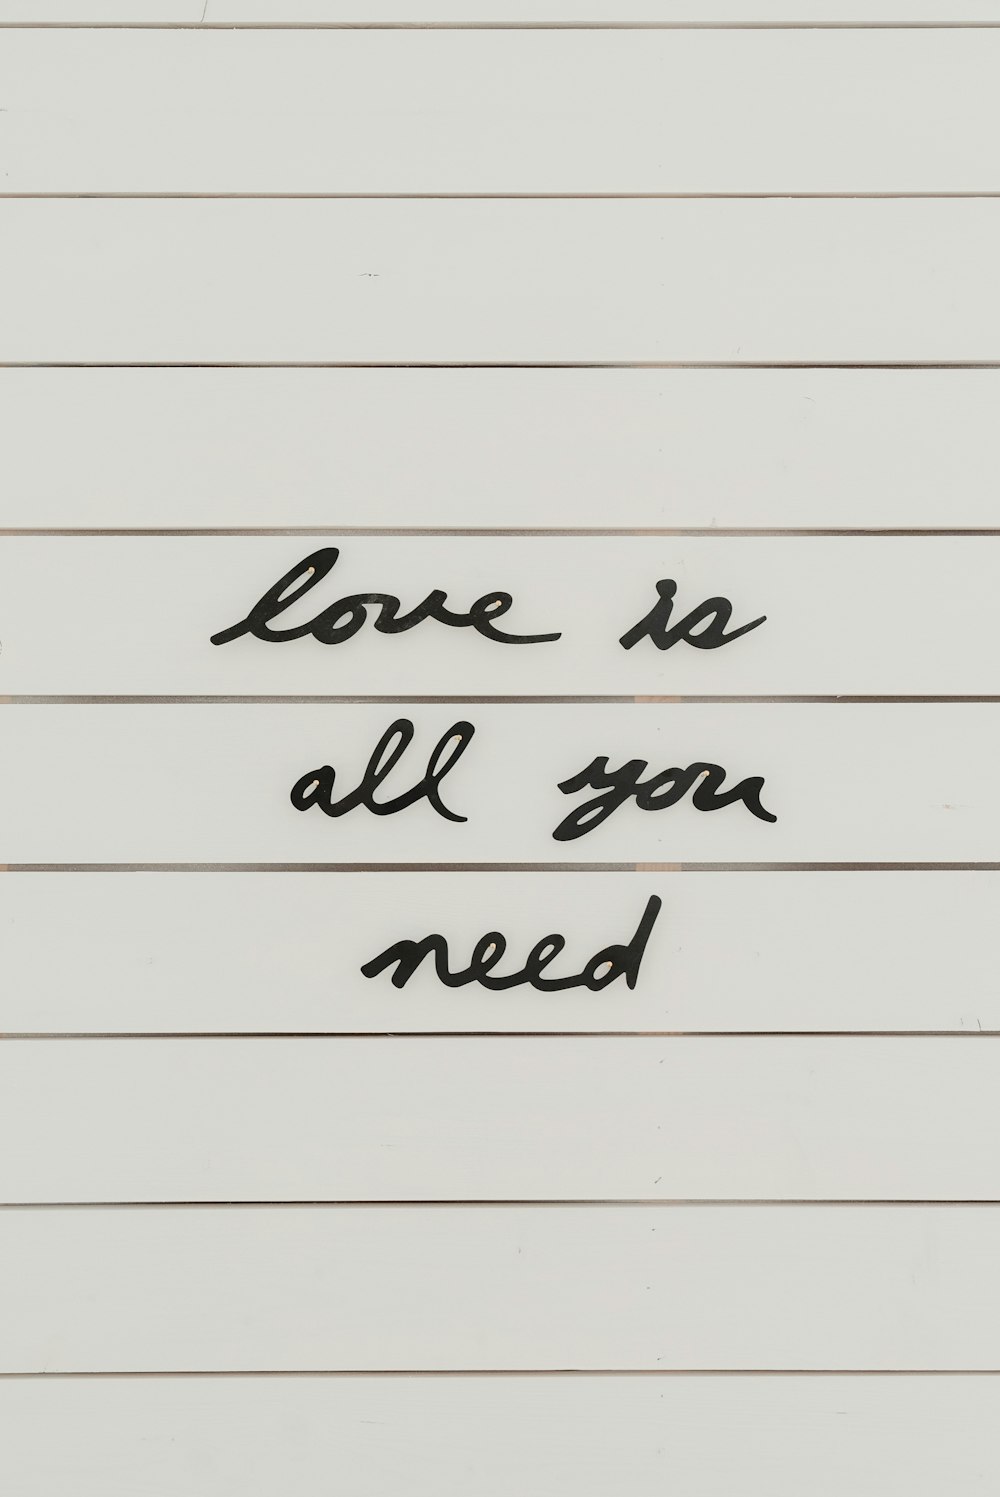 love is
all you
need